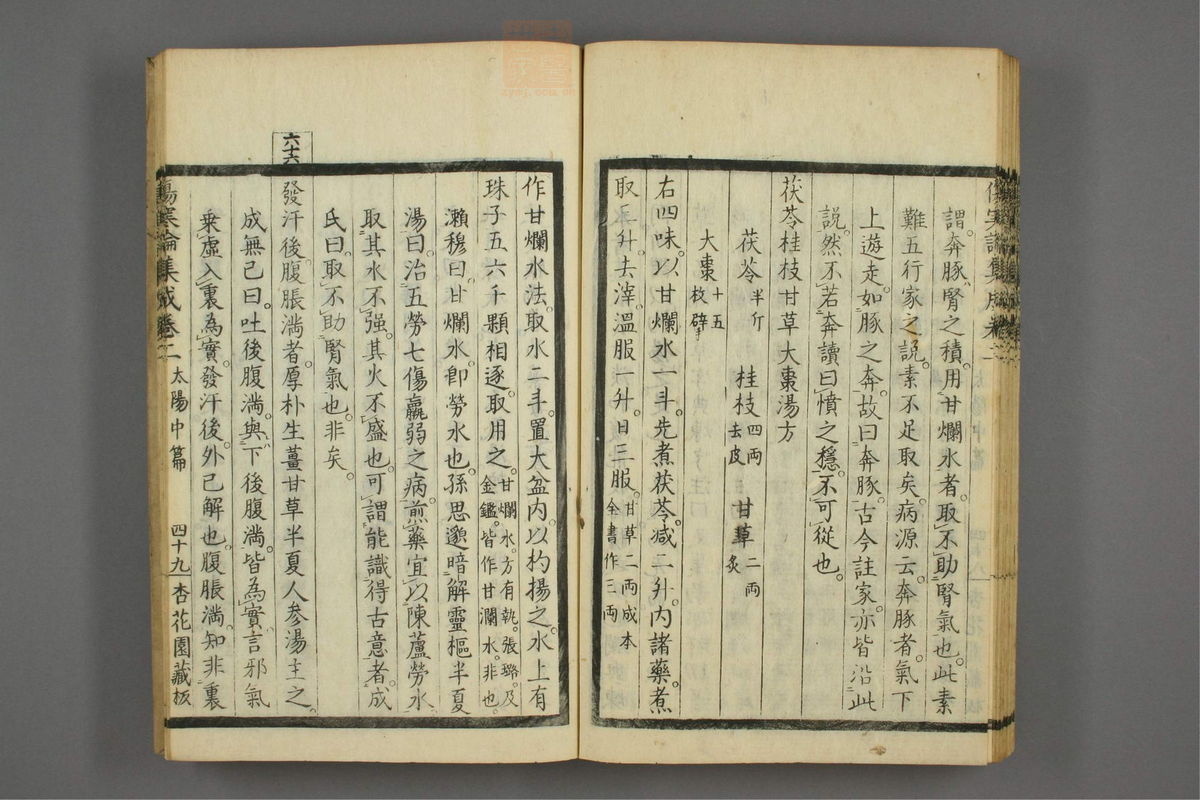 謂奔豚腎之積。用甘爛水者。取不助腎氣也。此素
難五行家之說。素不足取矣。病源云。奔豚者。氣下
上遊走。如豚之奔。故曰奔豚。古今註家亦皆沿此
說。然不若奔讀曰憤之穩。不可從也。
茯苓桂枝甘草大棗湯方
茯苓半斤 桂枝四兩去皮 甘草二兩炙
大棗十五枚擘
右四味。以甘爛水一斗。先煮茯苓。減二升。內諸藥。煮
取三升。去滓。溫服一升。日三服。甘草二兩成本全書作三兩
作甘爛水法。取水二斗。置大盆內。以杓揚之。水上有
珠子五六千顆相逐。取用之。甘爛水。方有執。張璐。及金鑑。皆作甘瀾水。非也。
瀨穆曰。甘爛水。卽勞水也。孫思邈暗解靈樞半夏
湯曰。治五勞七傷羸弱之病。煎藥宜以陳蘆勞水
取其水不強。其火不盛也。可謂能識得古意者。成
氏曰。取不助腎氣也。非矣。
六十六
發汗後。腹脹滿者。厚朴生薑甘草半夏人參湯主之。
成無己曰。吐後腹滿。與下後腹滿。皆為實。言邪氣
乘虛入裏為實。發汗後。外已解也。腹脹滿。知非裏
傷寒論集成卷二 太陽中篇 四十九 杏花園藏板